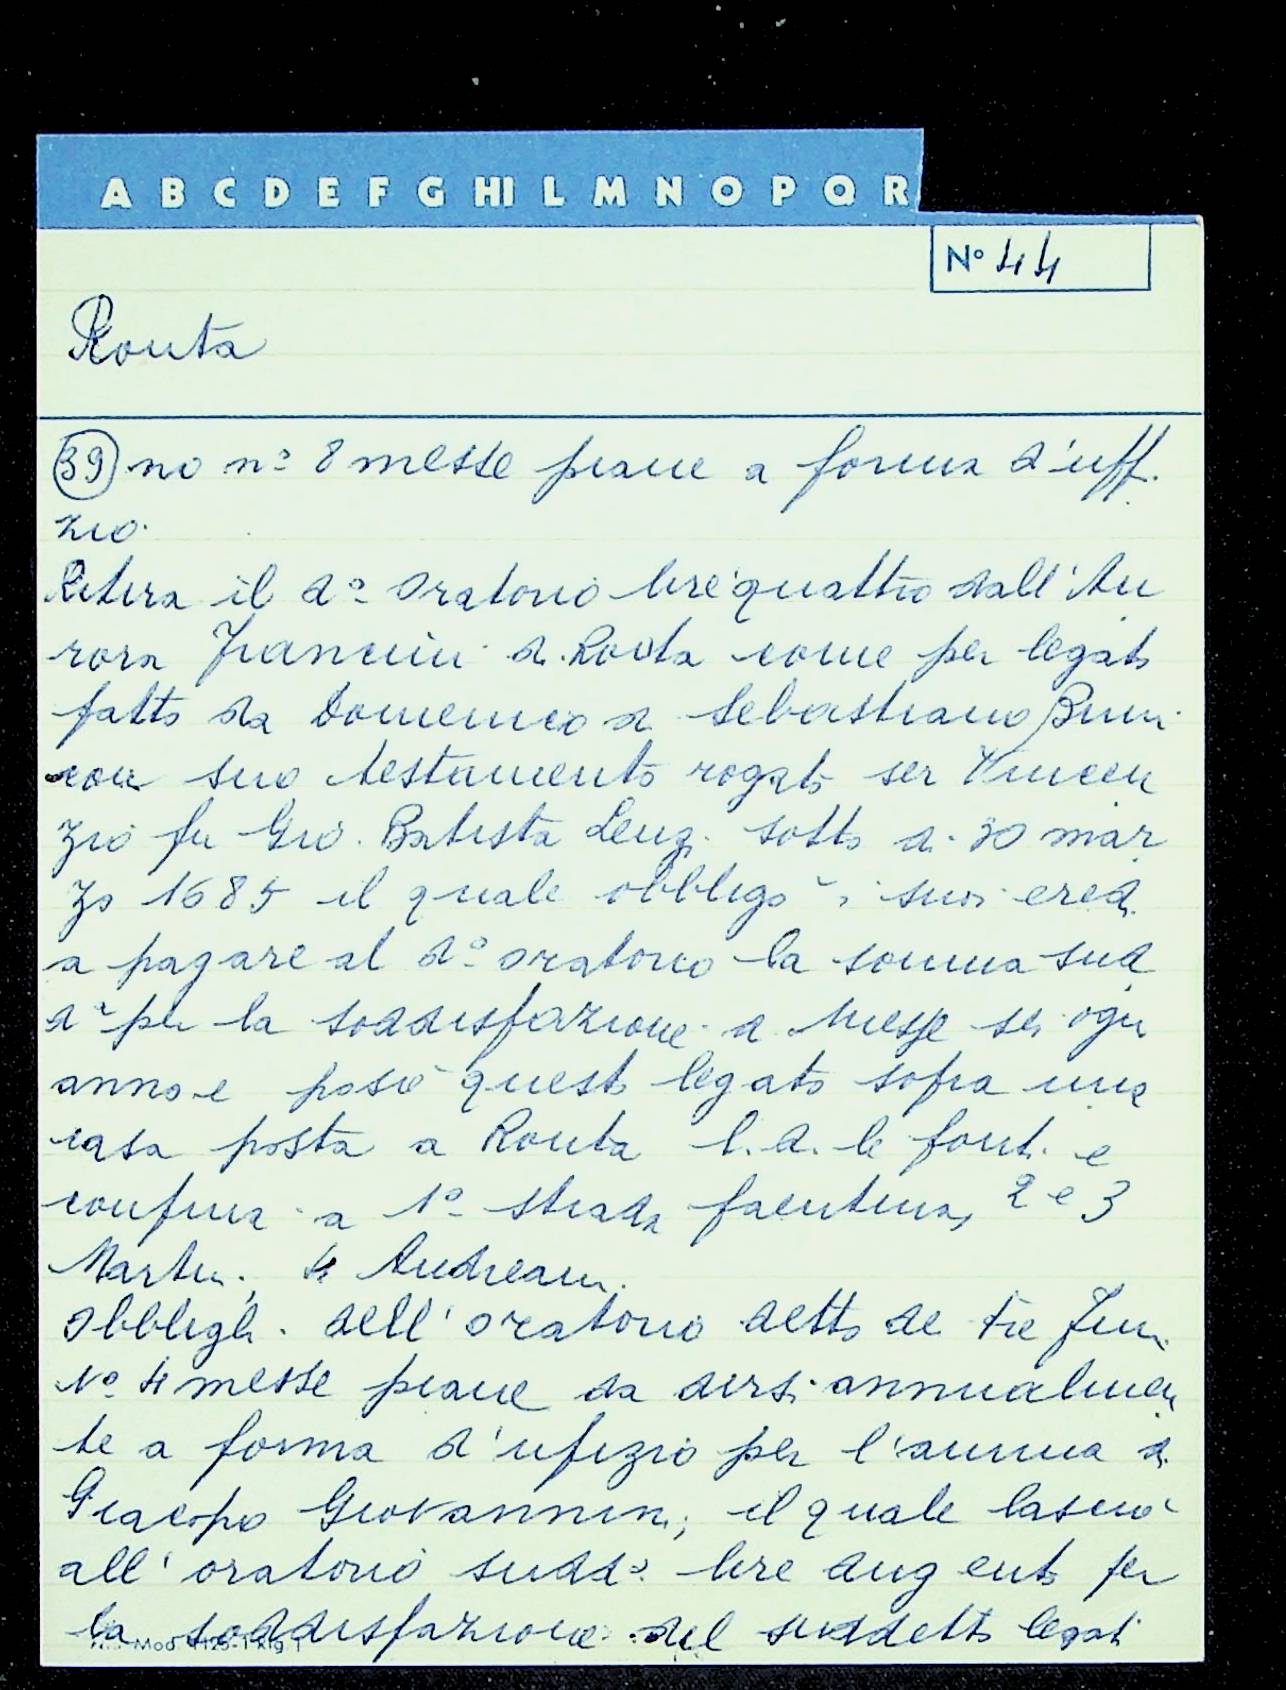 A B C D E F G HI L M N O P Q R
N° 44
Ronta
39 no n° 8 messe piane a forma d'uffi
zio.
Retira il d° oratorio lire quattro dall'Au
rora Francini di Ronta come per legato
fatto da Domenico di Sebastiano Bini
con suo testamento rogato ser Vincen
zio fu Gio. Batista Lenzi sotto di 30 mar
zo 1685 il quale obbligò i suoi eredi
a pagare al d° oratorio la somma sud
dª per la soddisfazione di Messe sei ogni
anno e posò questo legato sopra una
casa posta a Ronta l.d. le fonti e
confina a 1° strada faentina, 2 e 3
Martini, 4 Andreani.
Obblighi dell'oratorio detto de Tre Fiumi
N° 4 messe piane da dirsi annualmen
te a forma d'ufizio per l'anima di
Giacopo Giovannini, il quale lasciò
all'oratorio sudd° lire dugento per
la soddisfazione del suddetto legato